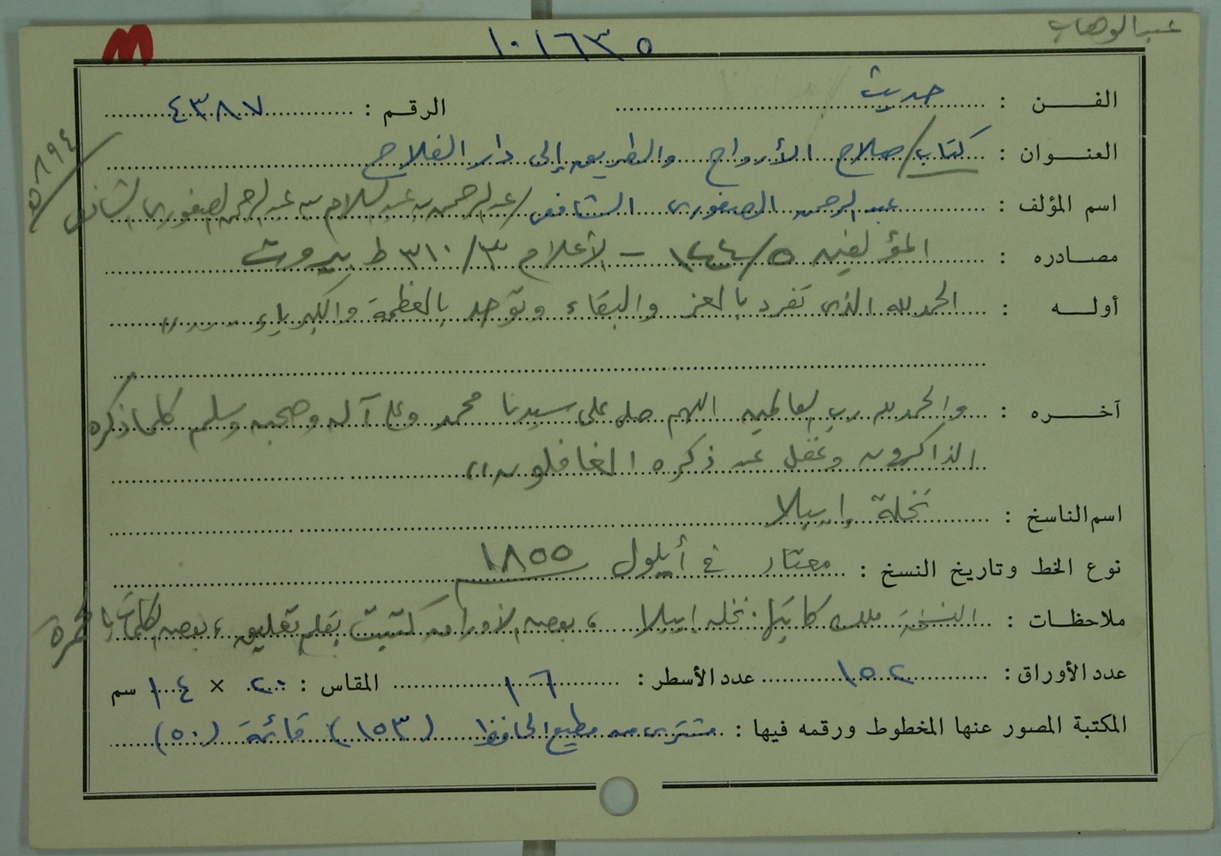 عبدالوهاب
١٠١٦٣٥
M
الفــــن : حديث
الرقم : ٤٣٨٧
العنــوان : كتاب/ صلاح الأرواح والطريق إلى دار الفلاح
اسم المؤلف : عبد الرحمن الصفوري الشافعي/ عبد الرحمن بن عبد السلام بن عبد الرحمن الصفوري الشافعي
٨٩٤هـ
مصــادره : المؤلفين ١٤٤/٥ - الأعلام ٣١٠/٣ ط بيروت
أولــه : الحمد لله الذي تفرد بالعز والبقاء وتوحد بالعظمة والكبرياء ......
آخــره : والحمد لله رب العالمين اللهم صل على سيدنا محمد وعلى آله وصحبه وسلم كلما ذكره
الذاكرون وغفل عن ذكره الغافلون ،،
اسم الناسخ : نخلة إبيلا
نوع الخط وتاريخ النسخ : معتاد في أيلول ١٨٥٥
ملاحظات : النسخة ملك كاتبها: نخله إبيلا ، بعض الأوراق كتبت بقلم تعليق ، بعض الكلمات بالحمرة
عدد الأوراق : ١٥٢ عدد الأسطر : ١٦ المقاس : ٢٠ × ١٤ سم
المكتبة المصور عنها المخطوط ورقمه فيها : مشترى من مطيع الحافظ (١٥٣) قائمة (٥٠)